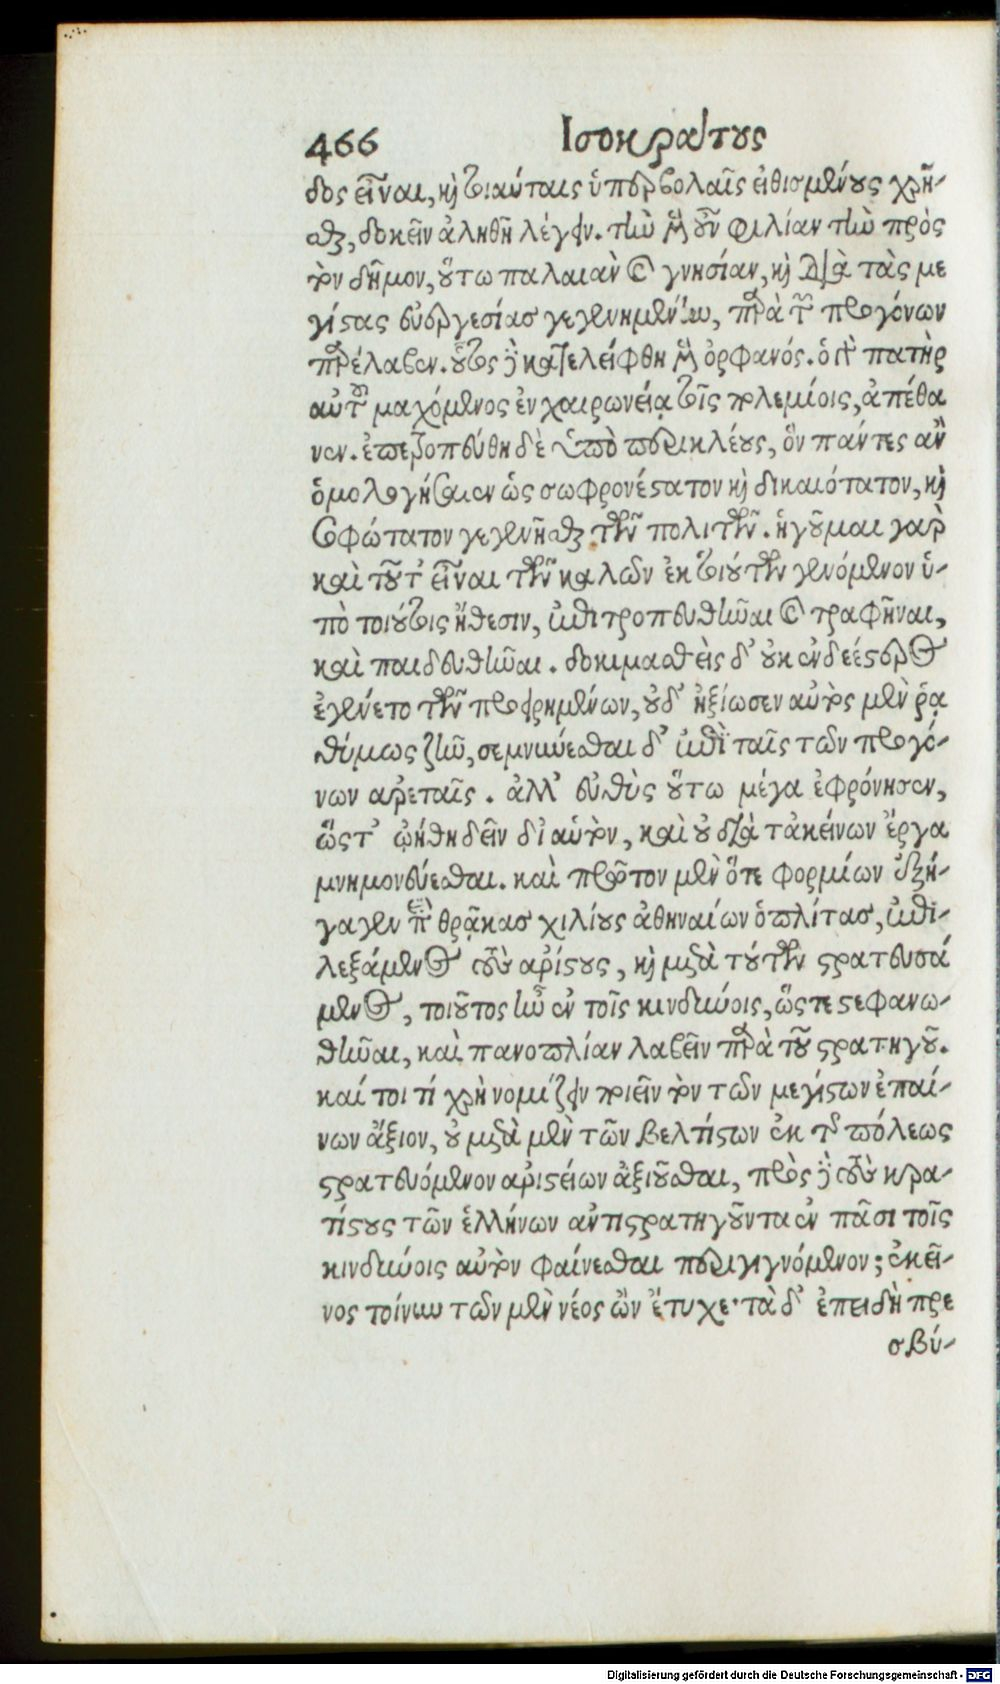 466 Ἰσοκράτους
δος εἶναι, καὶ τοιαύταις ὑπερβολαῖς εἰθισμένους χρῆ-
σθαι, δοκεῖν ἀληθῆ λέγειν. τὴν μὲν οὖν φιλίαν τὴν πρὸς
τὸν δῆμον, οὕτω παλαιὰν καὶ γνησίαν, καὶ διὰ τὰς με
γίστας εὐεργεσίας γεγενημένην, παρὰ τῶν προγόνων
παρέλαβεν. οὗτος γὰρ κατελείφθη μὲν ὀρφανός. ὁ γὰρ πατὴρ
αὐτοῦ μαχόμενος ἐν χαιρωνείᾳ τοῖς πολεμίοις, ἀπέθα
νεν. ἐπετροπεύθη δὲ ὑπὸ περικλέους, ὃν πάντες ἂν
ὁμολογήσαιεν ὡς σωφρονέστατον καὶ δικαιότατον, καὶ
σοφώτατον γεγενῆσθαι τῶν πολιτῶν. ἡγοῦμαι γὰρ
καὶ τοῦτ' εἶναι τῶν καλῶν ἐκ τοιούτων γενόμενον ὑ-
πὸ τοιούτοις ἤθεσιν, ἐπιτροπευθῆναι καὶ τραφῆναι,
καὶ παιδευθῆναι. δοκιμασθεὶς δ' οὐκ ἐνδεέστερος
ἐγένετο τῶν προειρημένων, οὐδ' ἠξίωσεν αὐτὸς μὲν ῥᾳ
θύμως ζῆν, σεμνύνεσθαι δ' ἐπὶ ταῖς τῶν προγό-
νων ἀρεταῖς. ἀλλ' εὐθὺς οὕτω μέγα ἐφρόνησεν,
ὥςτ' ᾠήθη δεῖν δι' αὑτὸν, καὶ οὐ διὰ τἀκείνων ἔργα
μνημονεύεσθαι. καὶ πρῶτον μὲν ὅτε φορμίων ἐξή-
γαγεν ἐπὶ θρᾷκας χιλίους ἀθηναίων ὁπλίτας, ἐπι-
λεξάμενος τοὺς ἀρίστους, καὶ μετὰ τούτων στρατευσά
μενος, τοιοῦτος ἦν ἐν τοῖς κινδύνοις, ὥςτε στεφανω-
θῆναι, καὶ πανοπλίαν λαβεῖν παρὰ τοῦ στρατηγοῦ.
καί τοι τί χρὴ νομίζειν ποιεῖν τὸν τῶν μεγίστων ἐπαί-
νων ἄξιον, οὐ μετὰ μὲν τῶν βελτίστων ἐκ τῆς πόλεως
στρατευόμενον ἀριστείων ἀξιοῦσθαι, πρὸς δὲ τοὺς κρα-
τίστους τῶν ἑλλήνων ἀντιστρατηγοῦντα ἐν πᾶσι τοῖς
κινδύνοις αὐτὸν φαίνεσθαι περιγιγνόμενον; ἐκεῖ-
νος τοίνυν τῶν μὲν νέος ὢν ἔτυχε· τὰ δ' ἐπειδὴ πρε
σβύ-
Digitalisierung gefördert durch die Deutsche Forschungsgemeinschaft - DFG